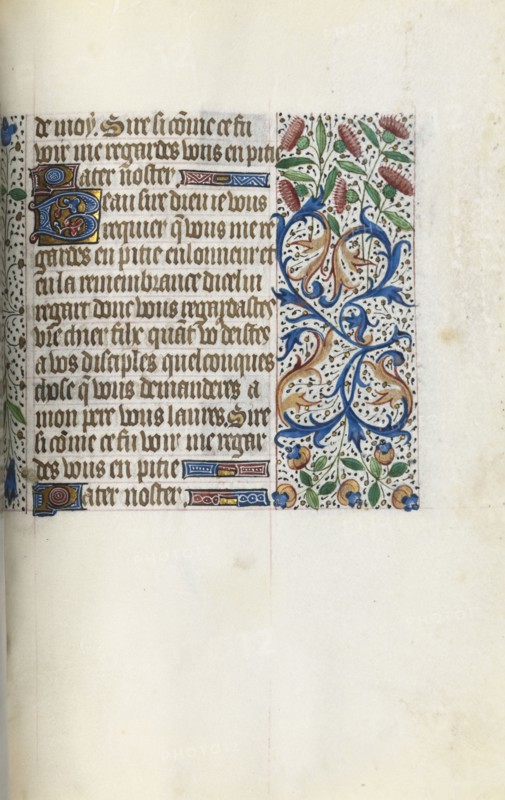 de moy. Sire si cõme ce fu
voir me regardes vous en pitie
Pater noster
Beau sire dieu ie vous
requier q̃ vous me re
gardes en pitie en lonneur et
en la remembrance dicelui
regart donc vous regardastes
vr̃e chier filz quãt vo deistes
a vos disciples quelconques
chose q̃ vous demanderes a
mon pere vous laures. Sire
si cõme ce fu voir me regar
des vous en pitie
Pater noster